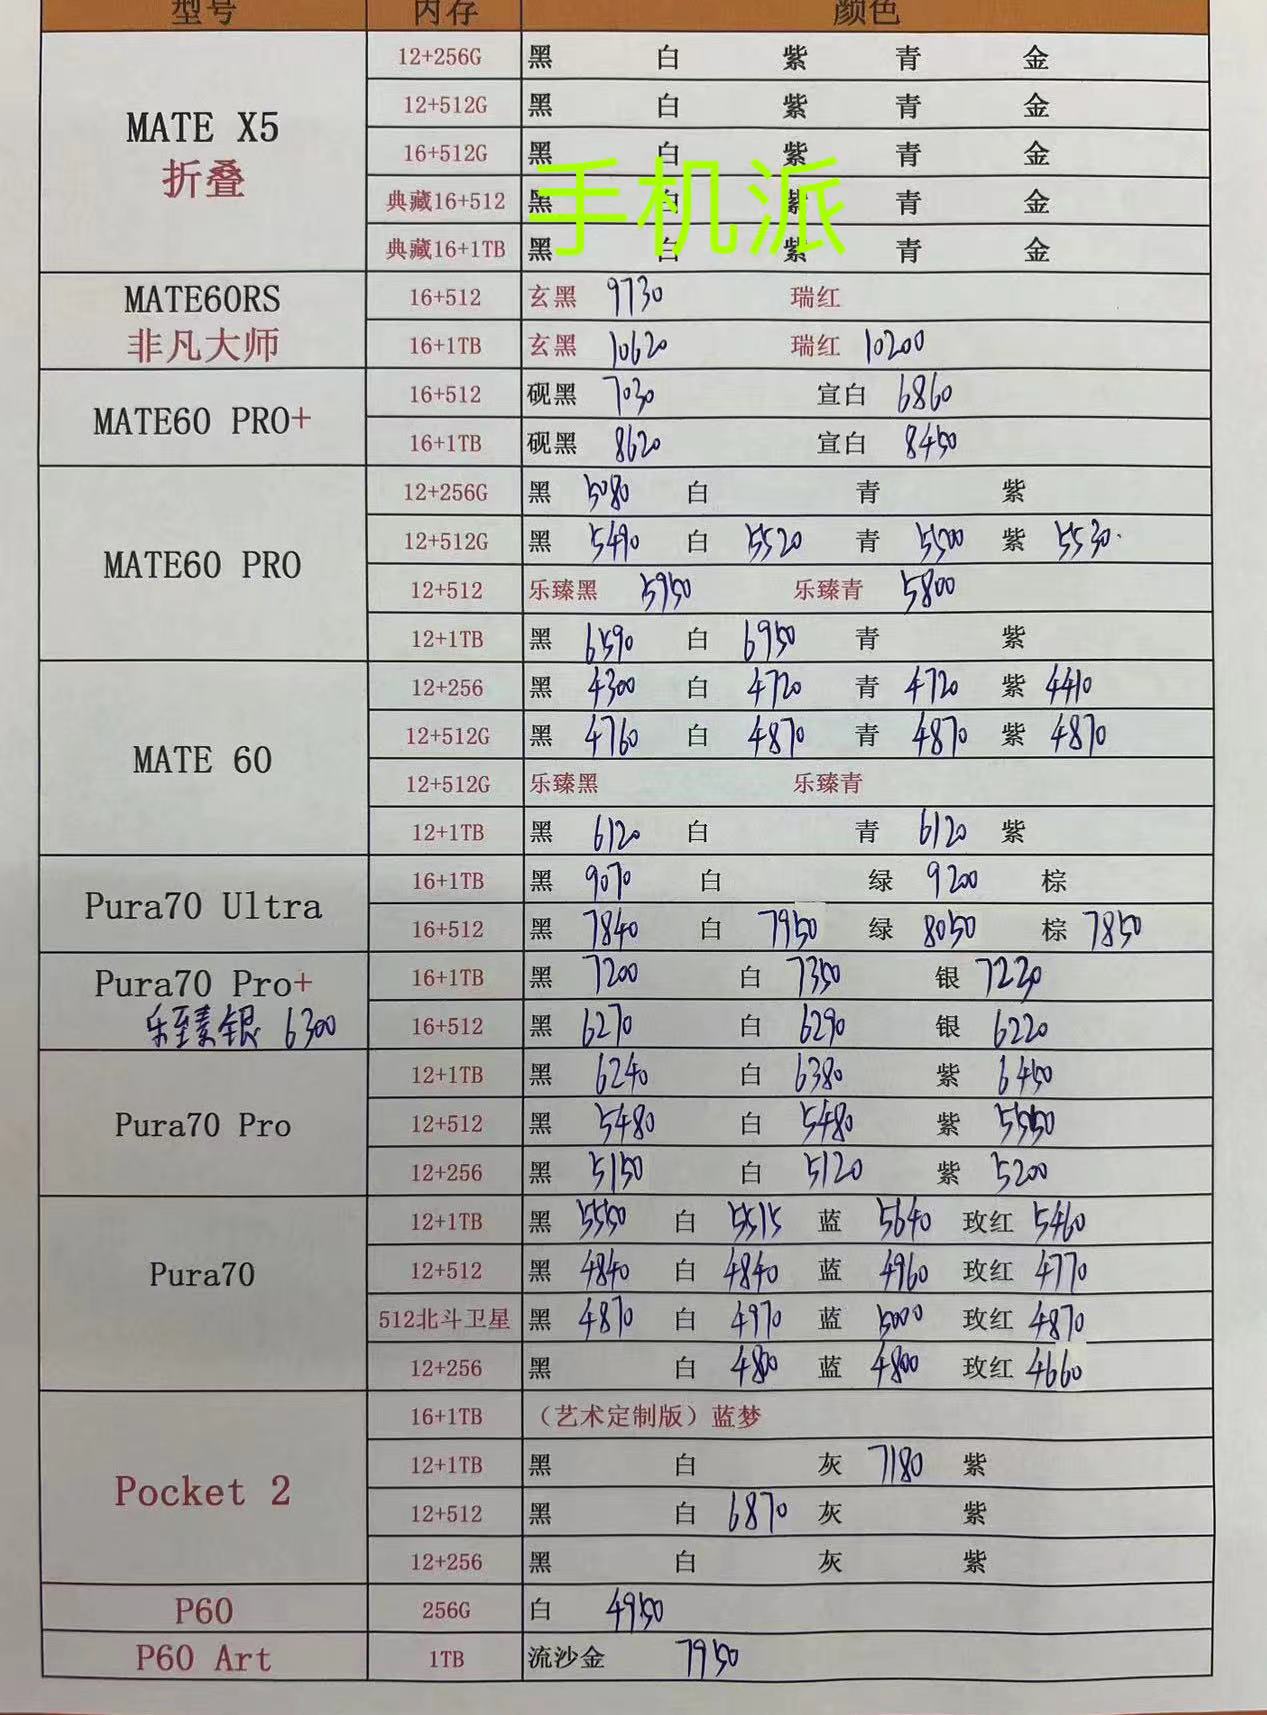 型号 内存 颜色
12+256G 黑 白 紫 青 金
12+512G 黑 白 紫 青 金
MATE X5
16+512G 黑 白 紫 青 金
折叠
手机派
典藏16+512 黑 白 紫 青 金
典藏16+1TB 黑 白 紫 青 金
MATE60RS 16+512 玄黑 9730 瑞红
非凡大师 16+1TB 玄黑 10620 瑞红 10200
16+512 砚黑 7030 宣白 6860
MATE60 PRO+
16+1TB 砚黑 8620 宣白 8450
12+256G 黑 5080 白 青 紫
12+512G 黑 5490 白 5520 青 5500 紫 5530
MATE60 PRO
12+512 乐臻黑 5950 乐臻青 5800
12+1TB 黑 6590 白 6950 青 紫
12+256 黑 4300 白 4720 青 4720 紫 4410
12+512G 黑 4760 白 4870 青 4870 紫 4870
MATE 60
12+512G 乐臻黑 乐臻青
12+1TB 黑 6120 白 青 6120 紫
16+1TB 黑 9070 白 绿 9200 棕
Pura70 Ultra
16+512 黑 7840 白 7950 绿 8050 棕 7850
Pura70 Pro+ 16+1TB 黑 7200 白 7350 银 7230
乐至素银 6300 16+512 黑 6270 白 6290 银 6220
12+1TB 黑 6240 白 6380 紫 6450
Pura70 Pro 12+512 黑 5480 白 5480 紫 5550
12+256 黑 5150 白 5120 紫 5200
12+1TB 黑 5550 白 5515 蓝 5640 玫红 5460
Pura70 12+512 黑 4840 白 4840 蓝 4960 玫红 4770
512北斗卫星 黑 4870 白 4970 蓝 5000 玫红 4870
12+256 黑 白 4800 蓝 4800 玫红 4660
16+1TB （艺术定制版）蓝梦
12+1TB 黑 白 灰 7180 紫
Pocket 2
12+512 黑 白 6870 灰 紫
12+256 黑 白 灰 紫
P60 256G 白 4950
P60 Art 1TB 流沙金 7950